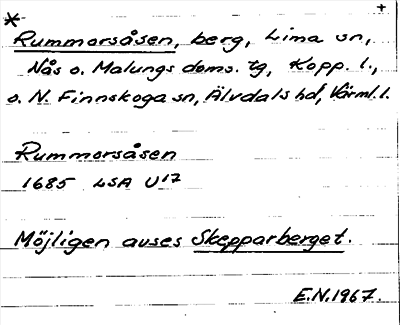 * +
Rummorsåsen, berg, Lima sn,
Nås o. Malungs doms. tg, Kopp. l.,
o. N. Finnskoga sn, Älvdals hd, Värml. l.
Rummorsåsen
1685 LSA U17
Möjligen avses Skepparberget.
E.N. 1967.